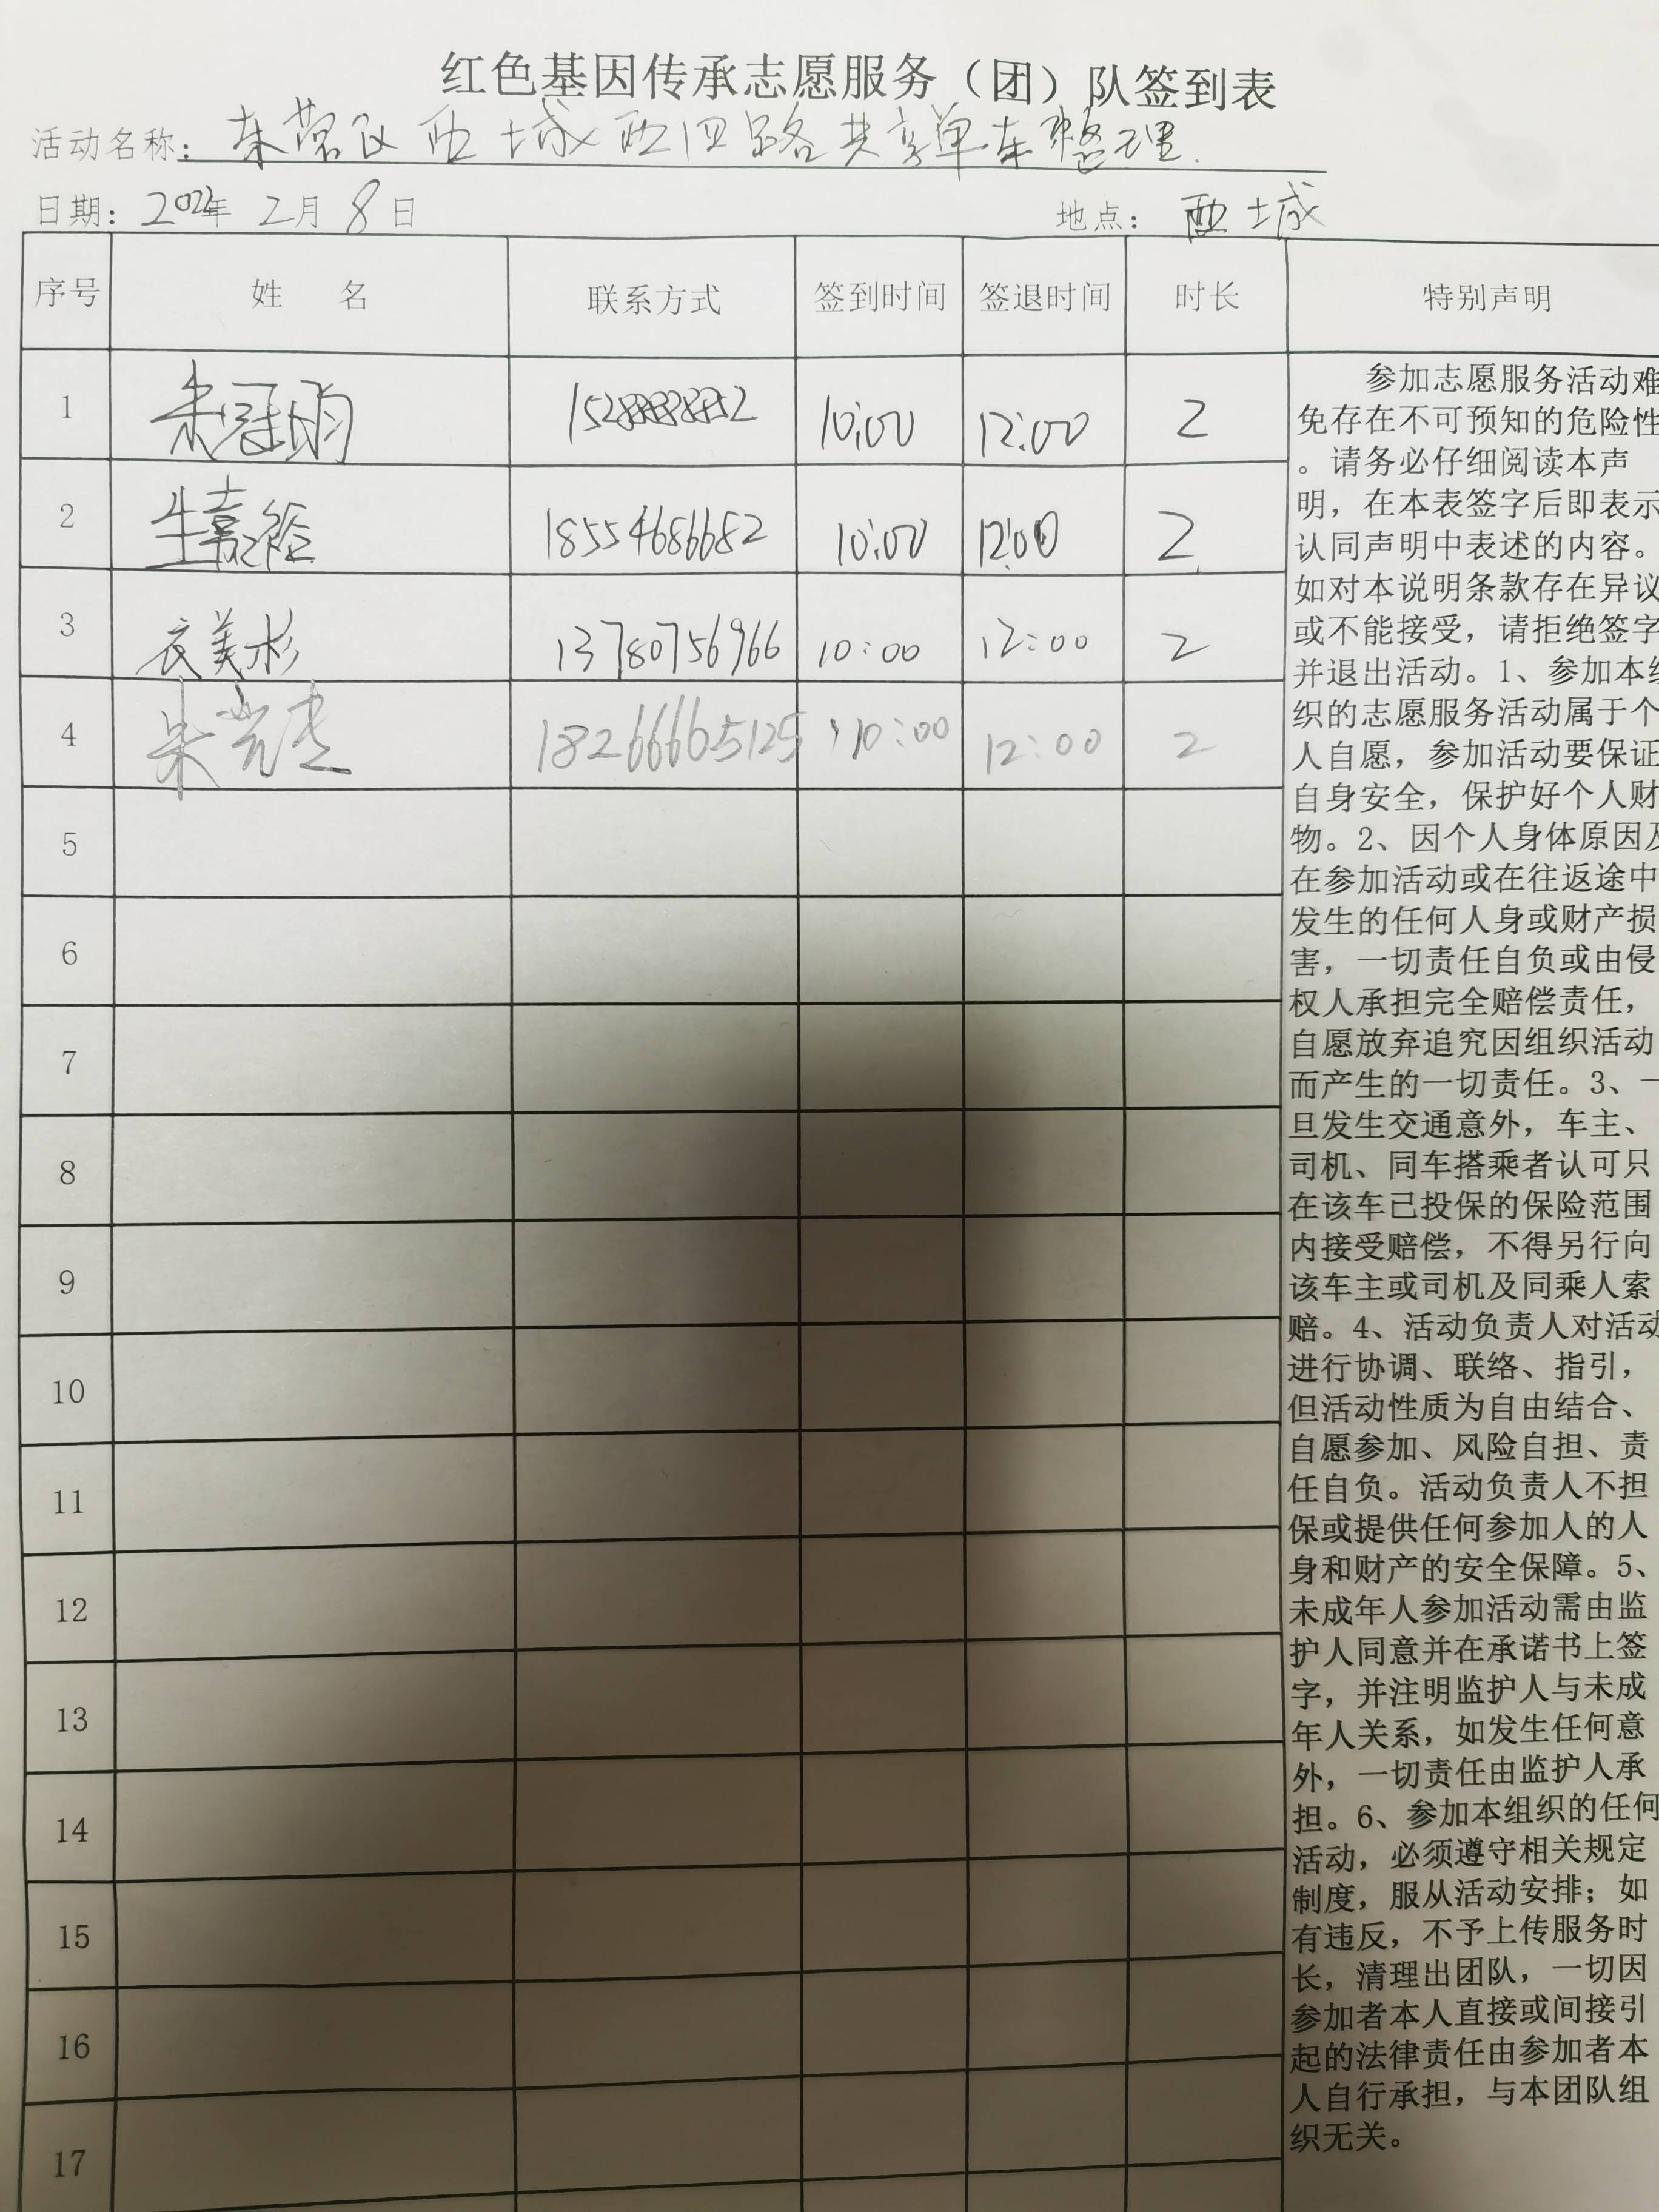 红色基因传承志愿服务（团）队签到表
活动名称：东营区西城西四路共享单车整理.
日期：2022年 2月 8日 地点：西城
序号 姓 名 联系方式 签到时间 签退时间 时长 特别声明
1 朱冠 10:00 12:00 2
2 生嘉 18554686682 10:00 12:00 2
3 衣美杉 13780756966 10:00 12:00 2
4 朱 18266665125 10:00 12:00 2
5
6
7
8
9
10
11
12
13
14
15
16
17
参加志愿服务活动难
免存在不可预知的危险性
。请务必仔细阅读本声
明，在本表签字后即表示
认同声明中表述的内容。
如对本说明条款存在异议
或不能接受，请拒绝签字
并退出活动。1、参加本组
织的志愿服务活动属于个
人自愿，参加活动要保证
自身安全，保护好个人财
物。2、因个人身体原因及
在参加活动或在往返途中
发生的任何人身或财产损
害，一切责任自负或由侵
权人承担完全赔偿责任，
自愿放弃追究因组织活动
而产生的一切责任。3、一
旦发生交通意外，车主、
司机、同车搭乘者认可只
在该车已投保的保险范围
内接受赔偿，不得另行向
该车主或司机及同乘人索
赔。4、活动负责人对活动
进行协调、联络、指引，
但活动性质为自由结合、
自愿参加、风险自担、责
任自负。活动负责人不担
保或提供任何参加人的人
身和财产的安全保障。5、
未成年人参加活动需由监
护人同意并在承诺书上签
字，并注明监护人与未成
年人关系，如发生任何意
外，一切责任由监护人承
担。6、参加本组织的任何
活动，必须遵守相关规定
制度，服从活动安排；如
有违反，不予上传服务时
长，清理出团队，一切因
参加者本人直接或间接引
起的法律责任由参加者本
人自行承担，与本团队组
织无关。